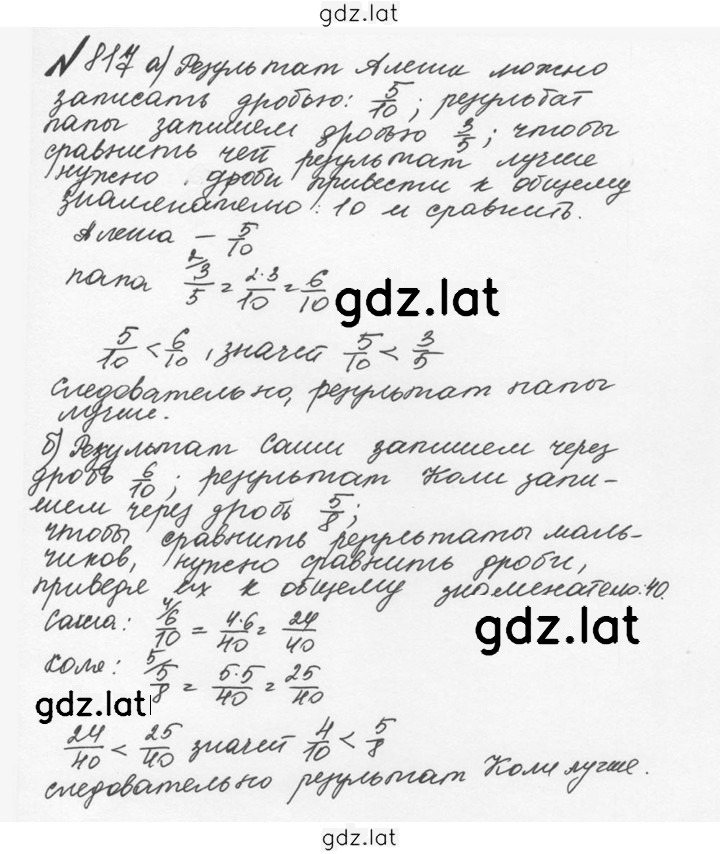 gdz.lat
№ 817 а) Результат Алеши можно
записать дробью: 5/10; результат
папы запишем дробью 3/5; чтобы
сравнить чей результат лучше
нужно дроби привести к общему
знаменателю: 10 и сравнить.
Алеша – 5/10
папа 2/ 3/5 = 2·3/10 = 6/10
gdz.lat
5/10 < 6/10, значит 5/10 < 3/5
следовательно, результат папы
лучше.
б) Результат Саши запишем через
дробь 6/10; результат Коли запи-
шем через дробь 5/8;
чтобы сравнить результаты маль-
чиков, нужно сравнить дроби,
приведя их к общему знаменателю: 40.
Саша: 4/ 6/10 = 4·6/40 = 24/40
gdz.lat
Коля: 5/ 5/8 = 5·5/40 = 25/40
gdz.lat
24/40 < 25/40 значит 4/10 < 5/8
следовательно результат Коли лучше.
gdz.lat